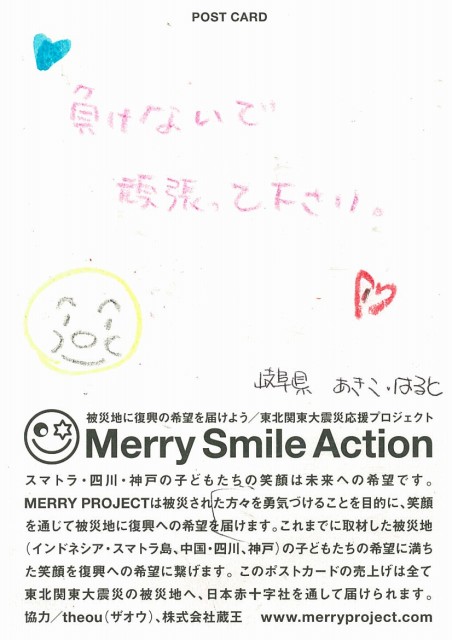 POST CARD
負けないで
頑張って下さい。
岐阜県 あきこ・はると
被災地に復興の希望を届けよう／東北関東大震災応援プロジェクト
Merry Smile Action
スマトラ・四川・神戸の子どもたちの笑顔は未来への希望です。
MERRY PROJECTは被災された方々を勇気づけることを目的に、笑顔
を通じて被災地に復興への希望を届けます。これまでに取材した被災地
（インドネシア・スマトラ島、中国・四川、神戸）の子どもたちの希望に満ち
た笑顔を復興への希望に繋げます。このポストカードの売上げは全て
東北関東大震災の被災地へ、日本赤十字社を通して届けられます。
協力／theou（ザオウ）、株式会社蔵王 www.merryproject.com